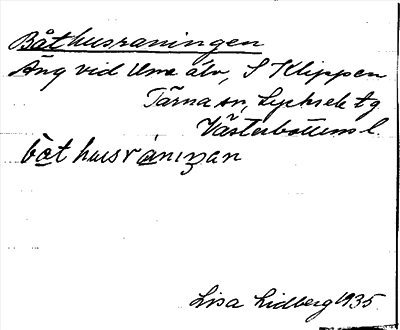 Båthusraningen
Äng vid Ume älv, S Klippen
Tärna sn, Lycksele tg
Västerbottens l.
bòt husránıŋan
Lisa Lidberg 1935